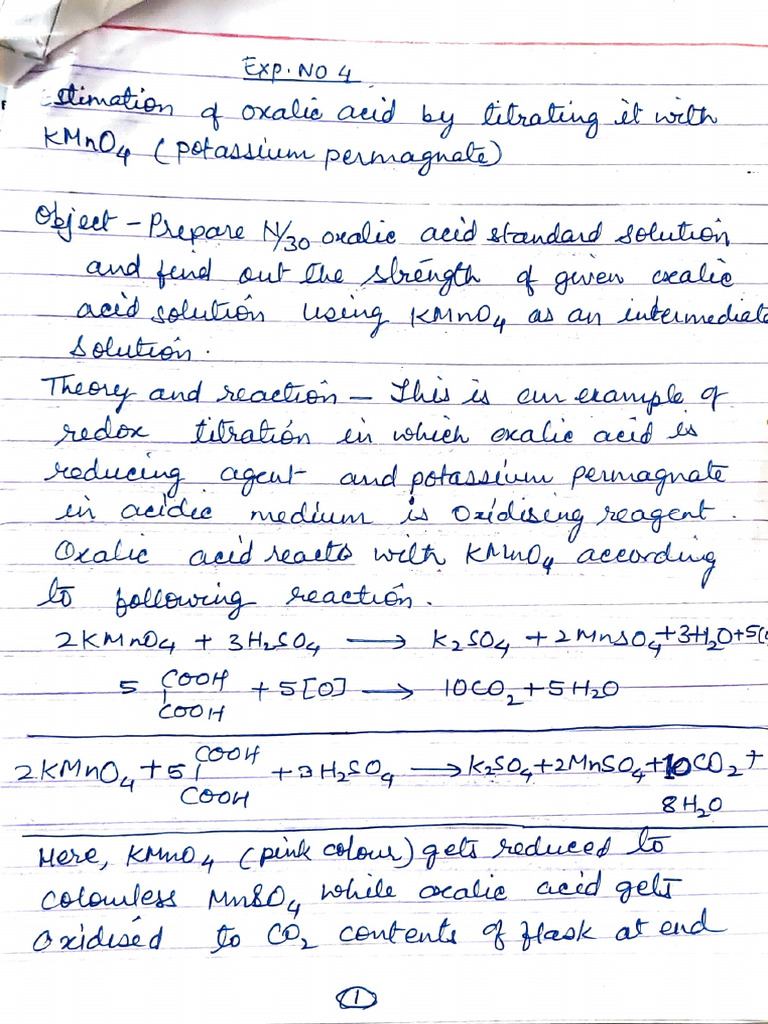 EXP. NO 4
Estimation of oxalic acid by titrating it with
KMnO4 (potassium permagnate)
Object - Prepare N/30 oxalic acid standard solution
and find out the strength of given oxalic
acid solution using KMnO4 as an intermediate
solution.
Theory and reaction - This is an example of
redox titration in which oxalic acid is
reducing agent and potassium permagnate
in acidic medium is oxidising reagent.
Oxalic acid reacts with KMnO4 according
to following reaction.
2KMnO4 + 3H2SO4 → K2SO4 + 2MnSO4 + 3H2O + 5[
5 COOH + 5[O] → 10CO2 + 5H2O
COOH
2KMnO4 + 5 COOH + 3H2SO4 → K2SO4 + 2MnSO4 + 10CO2 +
COOH 8H2O
Here, KMnO4 (pink colour) gets reduced to
colourless MnSO4 while oxalic acid gets
oxidised to CO2 contents of flask at end
1